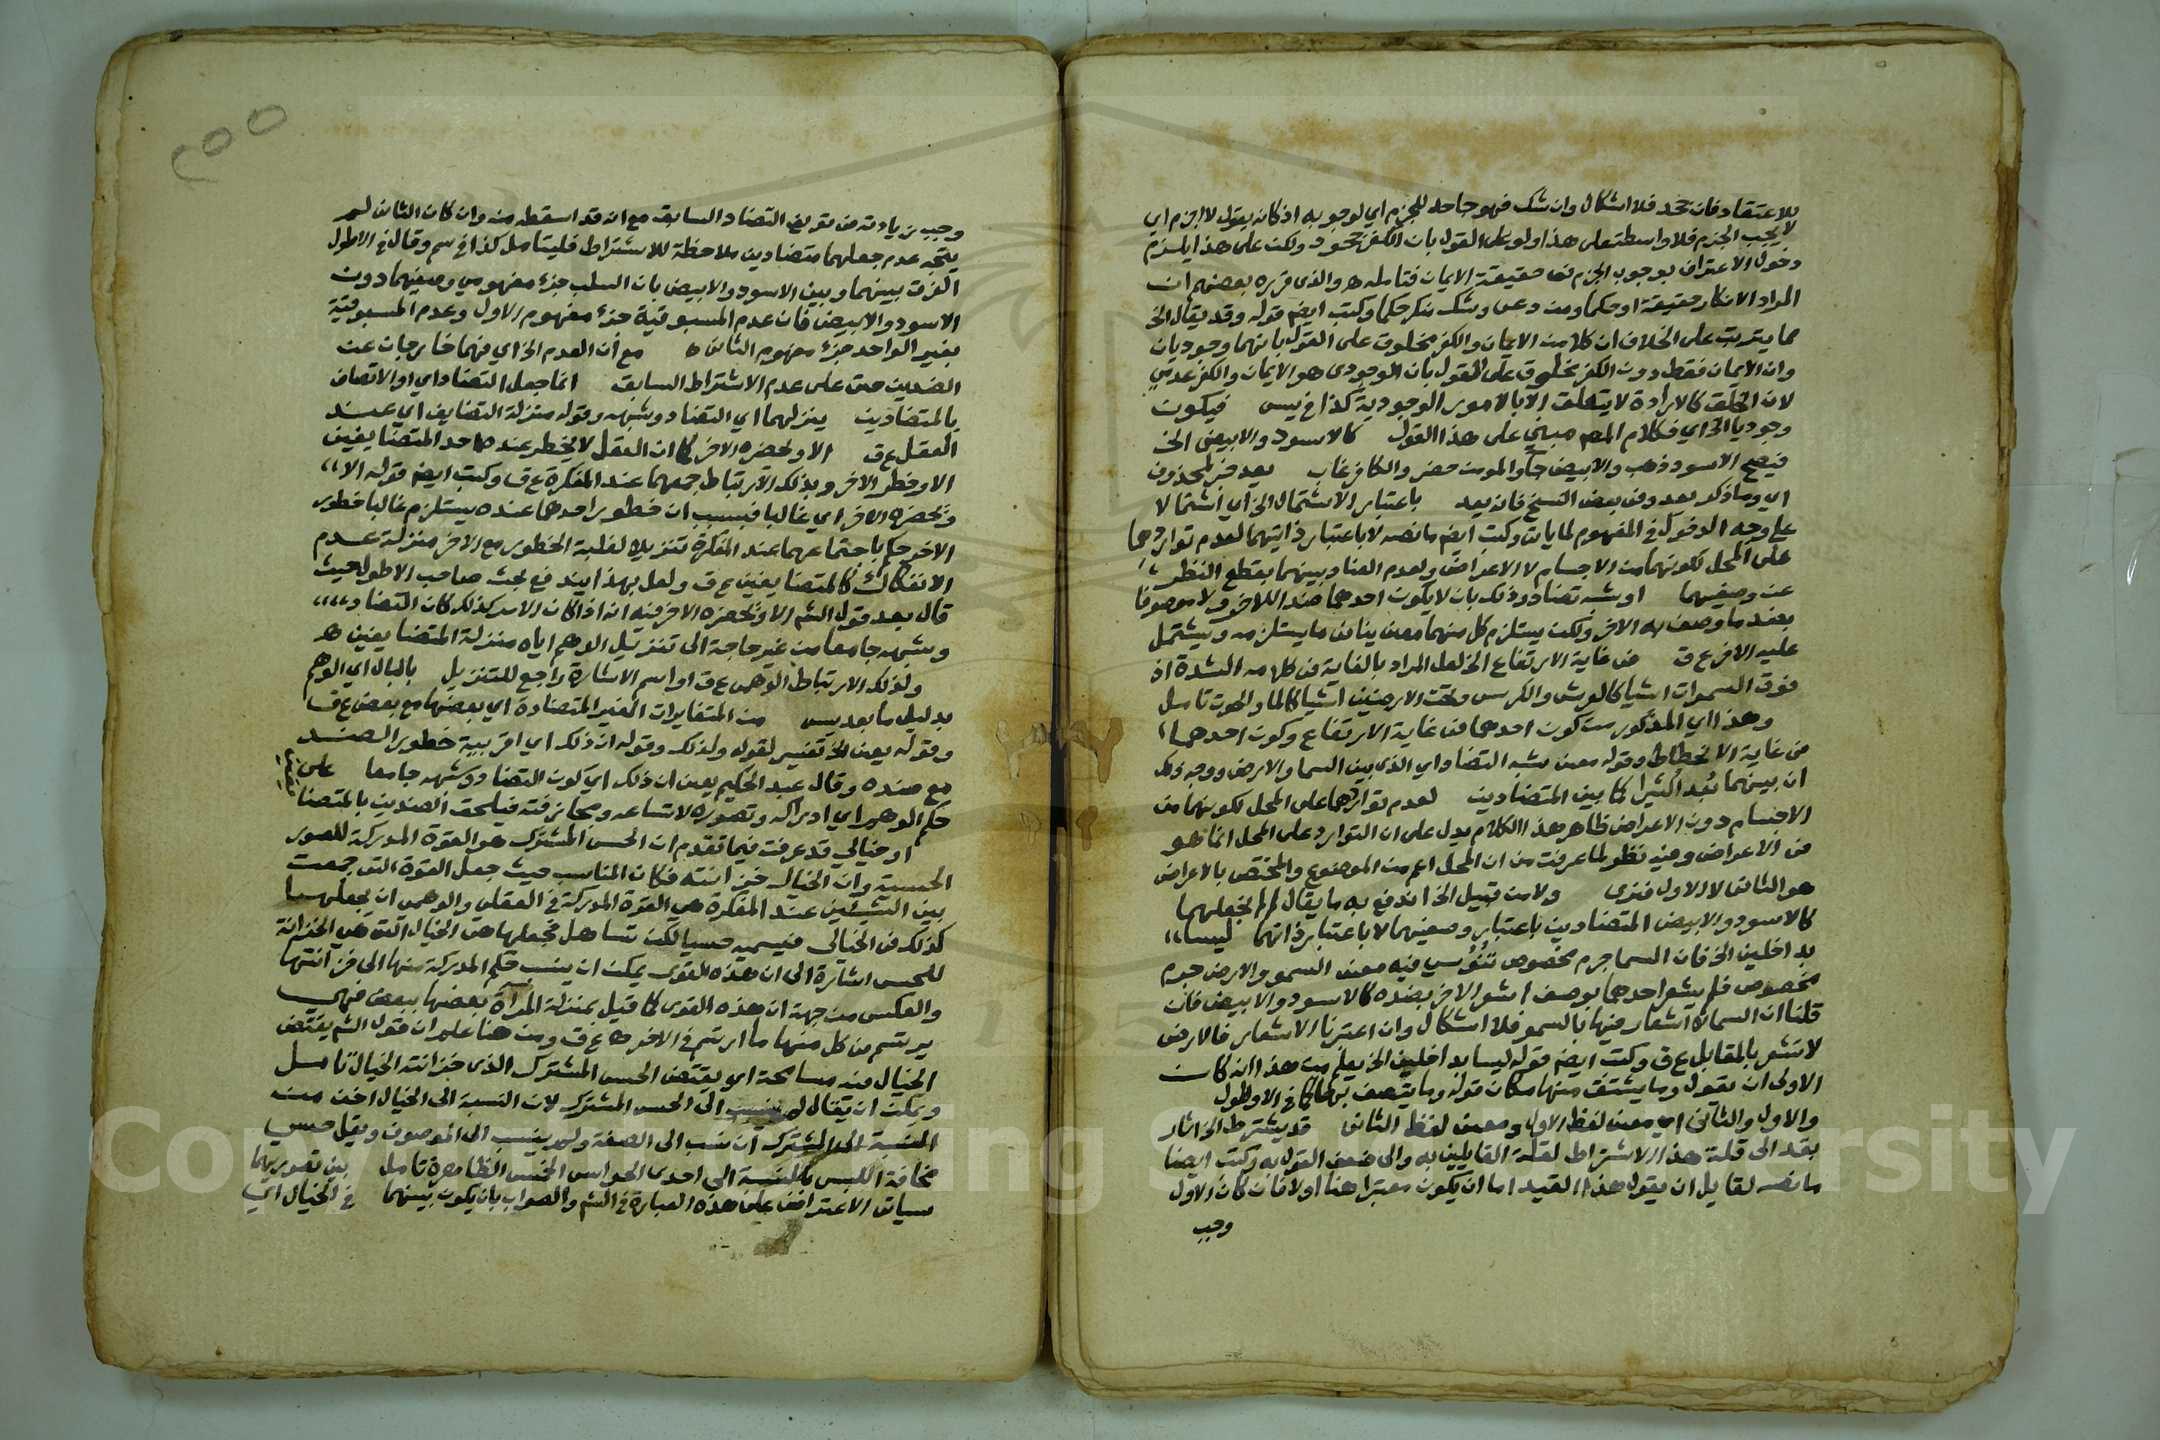 للاعتقاد فان جحد فلا اشكال وان شك فهو جاحد للجزم اي لوجوبه اذ كانه يقول لا اجزم اي
لا يجب الجزم فلا واسطة على هذا ولو على القول بان الكفر جحود ولكن على هذا يلزم
دخول الاعتراف بوجوب الجزم في حقيقة الايمان فتامله ه والذي قرره بعضهم ان
المراد الانكار حقيقة او حكما ومن دعي وشك منكر حكما وكتب ايضا قوله وقد يقال الخ
مما يترتب على الخلاف ان كلا من الايمان والكفر مخلوق على القول بانهما وجوديان
وان الايمان فقط دون الكفر مخلوق على القول بان الوجودي هو الايمان والكفر عدمي
لان الخلق كالارادة لا يتعلق الا بالامور الوجودية كذا في يس فيكون
وجوديا الخ اي فكلام المص مبني على هذا القول كالاسود والابيض الخ
فيصح الاسود ذهب والابيض جاء والمومن حضر والكافر غاب يعد خبر لمحذوف
اي وما ذكر يعد وفي بعض النسخ فانه يعد باعتبار الاشتمال الخ اي اشتمالا
على وجه الدخول في المفهوم لما يات وكتب ايضا ما نصه لا باعتبار ذاتيهما لعدم تواردهما
على المحل لكونهما من الاجسام لا الاعراض ولعدم العناد بينهما بقطع النظر
عن وصفيهما او شبه تضاد وذلك بان لا يكون احدهما ضد اللاخر ولا موصوفا
بضد ما وصف به الاخر ولكن يستلزم كل منهما معنى ينافي ما يستلزمه ويشتمل
عليه الاخر ع ق في غاية الارتفاع الخ لعل المراد بالغاية في كلامه الشدة اذ
فوق السموات اشيا كالعرش والكرسي وتحت الارضين اشيا كالماء والحوت تامل
وهذا اي المذكور من كون احدهما في غاية الارتفاع وكون احدهما
في غاية الانحطاط وقوله معنى شبه التضاد اي الذي بين السما والارض ووجه ذلك
ان بينهما بُعدا كثيرا كما بين المتضادين لعدم تواردهما على المحل لكونهما من
الاجسام دون الاعراض ظاهر هذا الكلام يدل على ان التوارد على المحل انما هو
في الاعراض وفيه نظر لما عرفت من ان المحل اعم من الموضوع والمختص بالاعراض
هو الثاني لا الاول فنرى ولا من قبيل الخ اندفع به ما يقال لم لم نجعلهما
كالاسود والابيض المتضادين باعتبار وصفيهما لا باعتبار ذاتهما ليسا
بداخلين الخ فان السما جرم مخصوص تنوسي فيه معنى السمو والارض جرم
مخصوص فلم يشعر احدهما بوصف اشعر الاخر بضده كالاسود والابيض فان
قلنا ان السما لا اشعار فيها بالسمو فلا اشكال وان اعتبرنا الاشعار فالارض
لا تشعر بالمقابل ع ق وكتب ايضا قوله ليسا بداخلين الخ يعلم من هذا انه كان
الاولى ان يقول وما يشتق منها مكان قوله وما يتصف بها كما في الاطول
والاول والثاني اي معنى لفظ الاول ومعنى لفظ الثاني قد يشترط الخ اشار
بقد الى قلة هذا الاشتراط لقلة القايلين به والى ضعف القول به وكتب ايضا
ما نصه لقايل ان يقول هذا القيد اما ان يكون معتبرا هنا او لا فان كان الاول
وجب
٢٥٥
وجب زيادته في تعريف التضاد السابق مع انه قد اسقطه منه وان كان الثاني لم
يتجه عدم جعلهما متضادين ملاحظة للاشتراط فليتامل كذا في سم وقال في الاطول
الفرق بينهما وبين الاسود والابيض بان السلب جزء مفهومي وصفيهما دون
الاسود والابيض فان عدم المسبوقية جزء مفهوم الاول وعدم المسبوقية
بغير الواحد جزء مفهوم الثاني ه مع ان العدم الخ اي فهما خارجان عن
الضدين حتى على عدم الاشتراط السابق انما جعل التضاد اي او الاتصاف
بالمتضادين ينزلهما اي التضاد وشبهه وقوله منزلة التضايف اي عند
العقل ع ق الا ويحضره الاخر كما ان العقل لا يخطر عنده احد المتضايفين
الا وخطر الاخر وبذلك الارتباط جمعهما عند المفكرة ع ق وكتب ايضا قوله الا
ويحضره الاخر اي غالبا فبسبب ان خطور احدهما عنده يستلزم غالبا خطور
الاخر حكم باجتماعهما عند المفكرة تنزيلا لغلبة الخطور مع الاخر منزلة عدم
الانفكاك كالمتضايفين ع ق ولعل بهذا يندفع بحث صاحب الاطول حيث
قال بعد قول الشم الا ويحضره الاخر فيه انه اذا كان الامر كذلك كان التضاد
وشبهه جامعا من غير حاجة الى تنزيل الوهم اياه منزلة المتضايفين ه
ولذلك الارتباط الوهمي ع ق او اسم الاشارة راجع للتنزيل بالبال اي الوهم
بدليل ما بعد يس من المتغايرات الغير المتضادة اي بعضها مع بعض ع ق
وقوله يعني الخ تفسير لقوله ولذلك وقوله ان ذلك اي اقربية خطور الضد
مع ضده وقال عبد الحكيم يعني ان ذلك اي كون التضاد وشبهه جامعا على
حكم الوهم اي ادراكه وتصوره لاتساعه ومجازفته فيلحق الضدين بالمتضا
يفين
او خيالي قد عرفت فيما تقدم ان الحس المشترك هو القوة المدركة للصور
الحسية وان الخيال خزانته فكان المناسب حيث جعل القوة التي جمعت
بين الشيئين عند المفكرة هي القوة المدركة في العقلي والوهمي ان يجعلها
كذلك في الخيالي فيسميه حسيا لكن تساهل فجعلها هي الخيال التي هي الخزانة
للحس اشارة الى ان هذه القوى يمكن ان ينسب حكم المدركة منها الى خزانتها
والعكس من جهة ان هذه القوى كما قيل بمنزلة المرآة بعضها ببعض فهي
يرتسم في كل منها ما ارتسم في الاخر ه ع ق ومن هنا علم ان قول الشم يقتضي
الخيال فيه مسامحة اي يقتضي الحس المشترك الذي خزانته الخيال تامل
ويمكن ان يقال لم ينسب الى الحس المشترك لان النسبة الى الخيال اخف من
النسبة الى المشترك ان نسب الى الصفة ولم ينسب الى الموصوف ويقل حسي
مخافة اللبس بالنسبة الى احدى الحواس الخمس الظاهرة تامل بين تصوريهما
سياتي الاعتراض على هذه العبارة في الشم والصواب بان يكون بينهما في الخيال اي